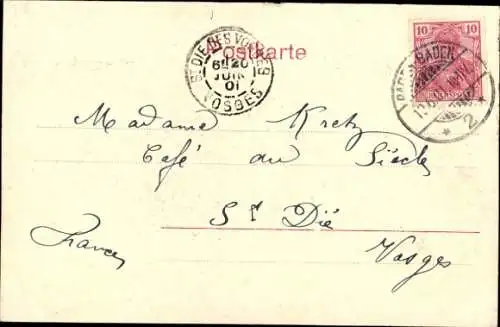 Postkarte
ST DIE DES VOSGES
6E 20
JUIN
01
VOSGES
10 10
BADEN-BADEN
2
Madame Kretz
Café du Siècle
St Dié
Vosges
France